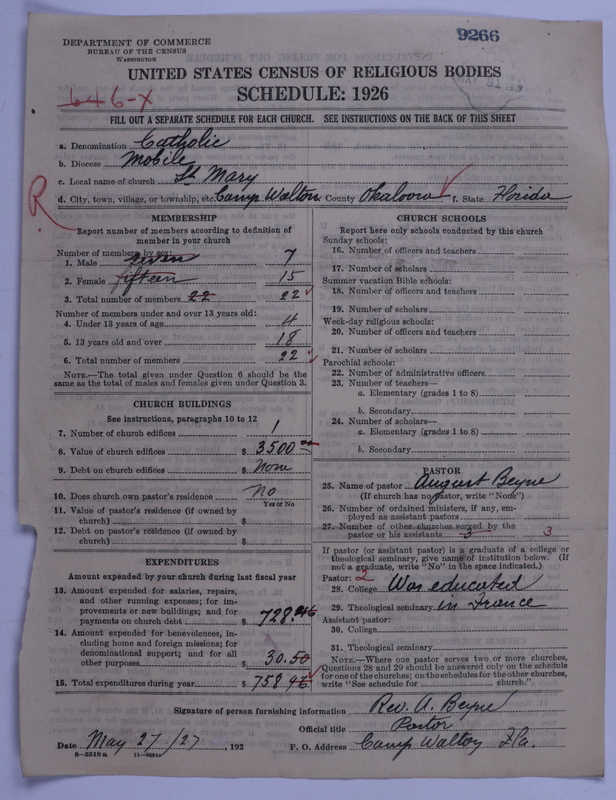 9266
DEPARTMENT OF COMMERCE
BUREAU OF THE CENSUS
WASHINGTON
UNITED STATES CENSUS OF RELIGIOUS BODIES
SCHEDULE: 1926
646-X
FILL OUT A SEPARATE SCHEDULE FOR EACH CHURCH. SEE INSTRUCTIONS ON THE BACK OF THIS SHEET
a. Denomination Catholic
b. Diocese Mobile
c. Local name of church St Mary
d. City, town, village, or township, etc. Camp Walton County Okaloosa f. State Florida
R
MEMBERSHIP
Report number of members according to definition of
member in your church
Number of members by sex:
1. Male seven 7
2. Female fifteen 15
3. Total number of members 22 22
Number of members under and over 13 years old:
4. Under 13 years of age 4
5. 13 years old and over 18
6. Total number of members 22
NOTE.—The total given under Question 6 should be the
same as the total of males and females given under Question 3.
CHURCH BUILDINGS
See instructions, paragraphs 10 to 12
7. Number of church edifices 1
8. Value of church edifices $ 3500
9. Debt on church edifices $ None
10. Does church own pastor's residence No
Yes or No
11. Value of pastor's residence (if owned by
church) $
12. Debt on pastor's residence (if owned by
church) $
EXPENDITURES
Amount expended by your church during last fiscal year
13. Amount expended for salaries, repairs,
and other running expenses; for im-
provements or new buildings; and for
payments on church debt $ 728.46
14. Amount expended for benevolences, in-
cluding home and foreign missions; for
denominational support; and for all
other purposes $ 30.50
15. Total expenditures during year $ 758 96
CHURCH SCHOOLS
Report here only schools conducted by this church
Sunday schools:
16. Number of officers and teachers
17. Number of scholars
Summer vacation Bible schools:
18. Number of officers and teachers
19. Number of scholars
Week-day religious schools:
20. Number of officers and teachers
21. Number of scholars
Parochial schools:
22. Number of administrative officers
23. Number of teachers—
a. Elementary (grades 1 to 8)
b. Secondary
24. Number of scholars—
a. Elementary (grades 1 to 8)
b. Secondary
PASTOR
25. Name of pastor August Beyne
(If church has no pastor, write "None")
26. Number of ordained ministers, if any, em-
ployed as assistant pastors
27. Number of other churches served by the
pastor or his assistants 3 3
If pastor (or assistant pastor) is a graduate of a college or
theological seminary, give name of institution below. (If
not a graduate, write "No" in the space indicated.)
Pastor: 2
28. College Was educated
29. Theological seminary in France
Assistant pastor:
30. College
31. Theological seminary
NOTE.—Where one pastor serves two or more churches,
Questions 28 and 29 should be answered only on the schedule
for one of the churches; on the schedules for the other churches,
write "See schedule for church."
Signature of person furnishing information Rev. A. Beyne
Official title Pastor
Date May 27/27, 192 P. O. Address Camp Walton Fla.
8-5518a